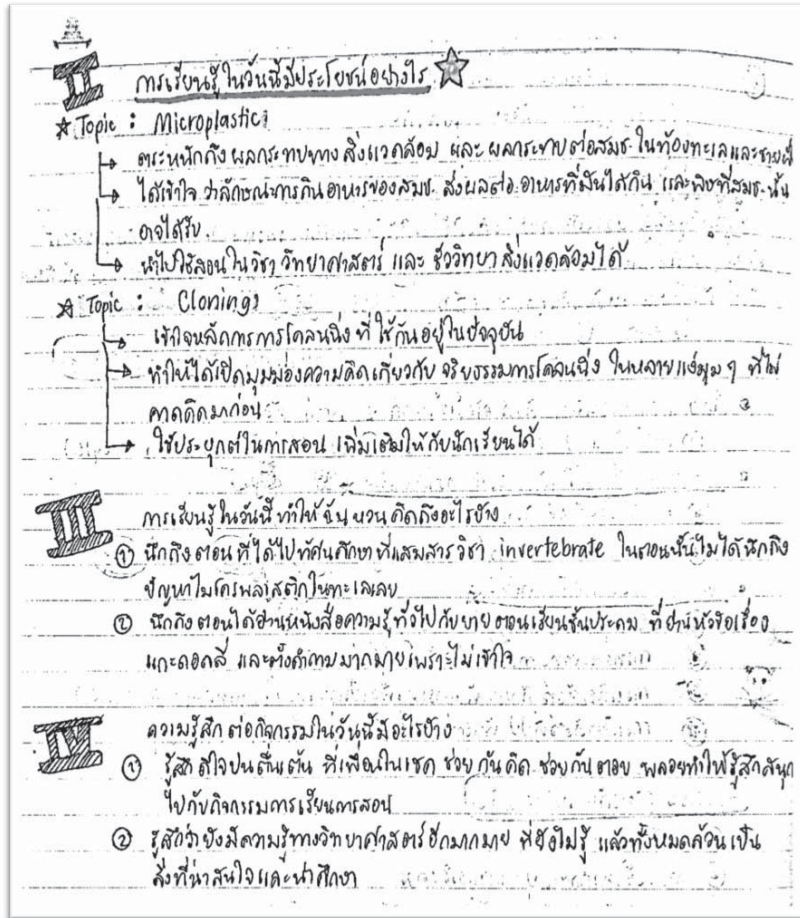 II การเรียนรู้ในวันนี้มีประโยชน์อย่างไร
☆ Topic : Microplastic
→ ตระหนักถึงผลกระทบทางสิ่งแวดล้อม และ ผลกระทบต่อสมช. ในท้องทะเลและชายฝั่ง
→ ได้เข้าใจ ว่าลักษณะการกินอาหารของสมช. ส่งผลต่อ อาหารที่มันได้กิน และพิษที่สมช. นั้น
อาจได้รับ
→ นำไปใช้สอนในวิชา วิทยาศาสตร์ และ ชีววิทยาสิ่งแวดล้อมได้
☆ Topic : Cloning
→ เข้าใจหลักการการโคลนนิ่ง ที่ใช้กันอยู่ในปัจจุบัน
→ ทำให้ได้เปิดมุมมองความคิดเกี่ยวกับ จริยธรรมการโคลนนิ่ง ในหลายแง่มุม ๆ ที่ไม่
คาดคิดมาก่อน
→ ใช้ประยุกต์ในการสอน เพิ่มเติมให้กับนักเรียนได้
III การเรียนรู้ในวันนี้ ทำให้ฉันหวนคิดถึงอะไรบ้าง
① นึกถึงตอนที่ได้ไปทัศนศึกษาที่แสมสาร วิชา invertebrate ในตอนนั้นไม่ได้นึกถึง
ปัญหาไมโครพลาสติกในทะเลเลย
② นึกถึงตอนได้อ่านหนังสือความรู้ทั่วไปกับยาย ตอนเรียนชั้นประถม ที่อ่านหัวข้อเรื่อง
แกะดอลลี่ และตั้งคำถามมากมายเพราะไม่เข้าใจ
IV ความรู้สึก ต่อกิจกรรมในวันนี้มีอะไรบ้าง
① รู้สึกดีใจปนตื่นเต้น ที่เพื่อนในเซค ช่วยกันคิด ช่วยกันตอบ พลอยทำให้รู้สึกสนุก
ไปกับกิจกรรมการเรียนการสอน
② รู้สึกว่ายังมีความรู้ทางวิทยาศาสตร์อีกมากมาย ที่ยังไม่รู้ แล้วทั้งหมดล้วนเป็น
สิ่งที่น่าสนใจและน่าศึกษา